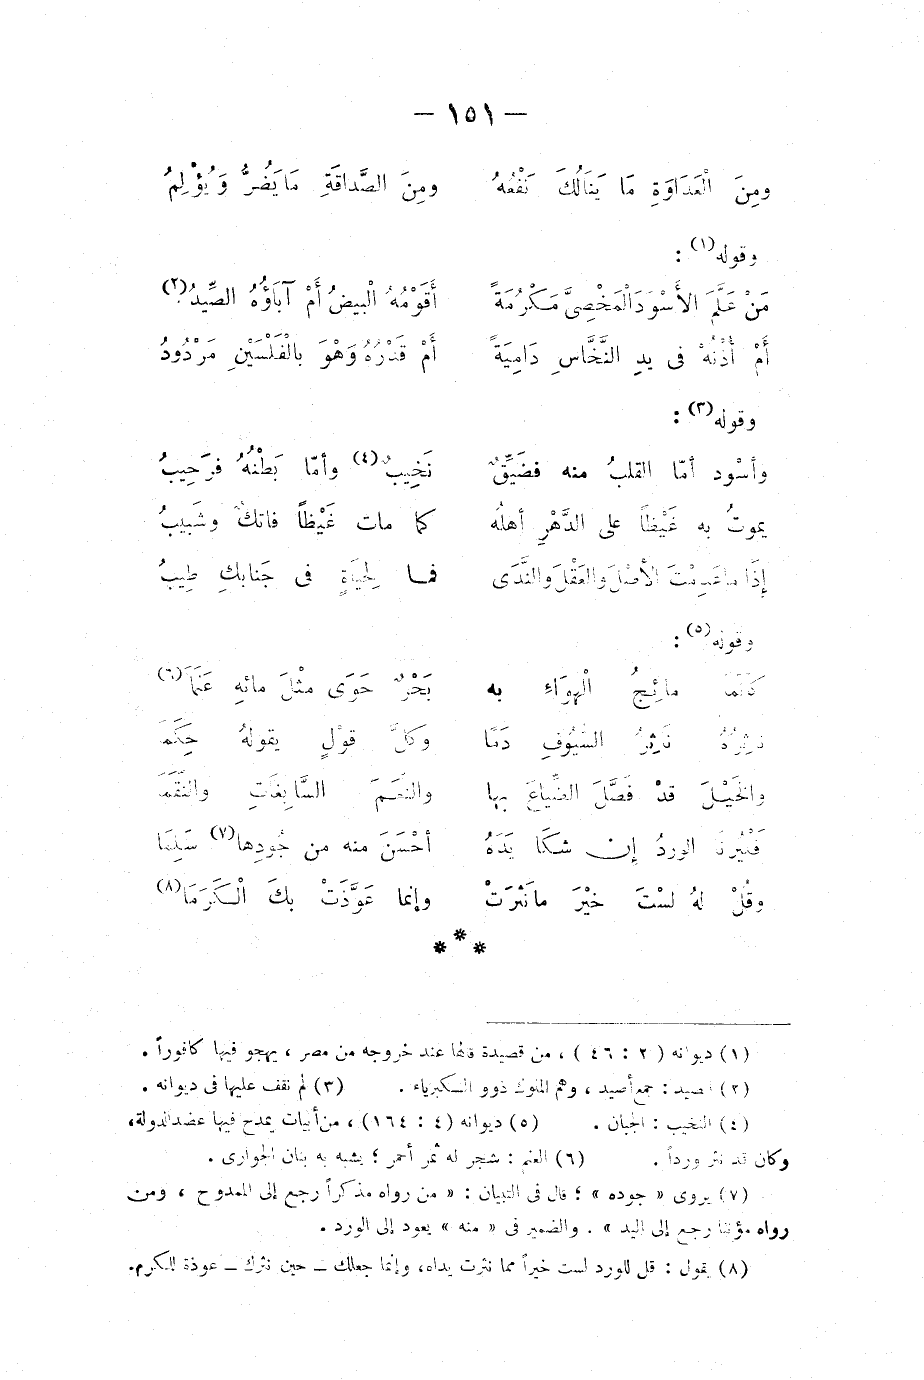 — ١٥١ —
ومِنَ الْعَدَاوَةِ مَا يَنَالُكَ نَفْعُهُ ومِنَ الصَّدَاقَةِ مَا يَضُرُّ وَيُؤْلِمُ
وقوله(١) :
مَنْ عَلَّمَ الأَسْوَدَ الْمَخْصِىَّ مَكْرُمَةً أَقَوْمُهُ الْبِيضُ أَمْ آبَاؤُهُ الصِّيدُ(٢)
أَمْ أُذْنُهُ فى يدِ النَّخَّاسِ دَامِيَةً أَمْ قَدْرُهُ وَهْوَ بالْفَلْسَيْنِ مَرْدُودُ
وقوله(٣) :
وأسْود أمّا القلبُ منه فضَيِّقٌ نَخِيبٌ(٤) وأمّا بَطْنُهُ فرَحِيبُ
يموتُ به غَيْظاً على الدَّهْرِ أهلُه كما مات غَيْظاً فاتكٌ وشَبِيبُ
إذَا ما عَدِمْتَ الأصْلَ والعَقْلَ والنَّدَى فمــا لِحيَاةٍ فى جَنابكِ طِيبُ
وقوله(٥) :
كأنَّما مائِجُ الْهوَاءِ به بَحْرٌ حَوَى مثْلَ مائهِ عَنَمَا(٦)
ناثِرُهُ ناثِرُ السُّيُوفِ دَمًا وكلَّ قوْلٍ يقولهُ حِكَمَا
والخَيْـلَ قدْ فَصَّلَ الضِّياعَ بها والنِّعَـمَ السَّابغَاتِ والنِّقَمَا
فَلْيُرِنَا الوردُ إن شكَا يَدَهُ أحْسَنَ منه من جُودِها(٧) سَلِمَا
وقُلْ لهُ لسْتَ خيْرَ مانَثَرَتْ وإنما عَوَّذَتْ بكَ الْـكَرَمَا(٨)
* * *
(١) ديوانه ( ٢ : ٤٦ ) ، من قصيدة قالها عند خروجه من مصر ، يهجو فيها كافوراً .
(٢) الصيد : جمع أصيد ، وهم الملوك ذوو الكبرياء . (٣) لم نقف عليها فى ديوانه .
(٤) النخيب : الجبان . (٥) ديوانه (٤ : ١٦٤) ، من أبيات يمدح فيها عضد الدولة،
وكان قد نثر ورداً . (٦) العنم : شجر له ثمر أحمر ؛ يشبه به بنان الجوارى .
(٧) يروى « جوده » ؛ قال فى التبيان : « من رواه مذكراً رجع إلى الممدوح ، ومن
رواه مؤنثا رجع إلى اليد » . والضمير فى « منه » يعود إلى الورد .
(٨) يقول : قل للورد لست خيراً مما نثرت يداه، وإنما جعلك ــ حين نثرك ــ عوذة للكرم.